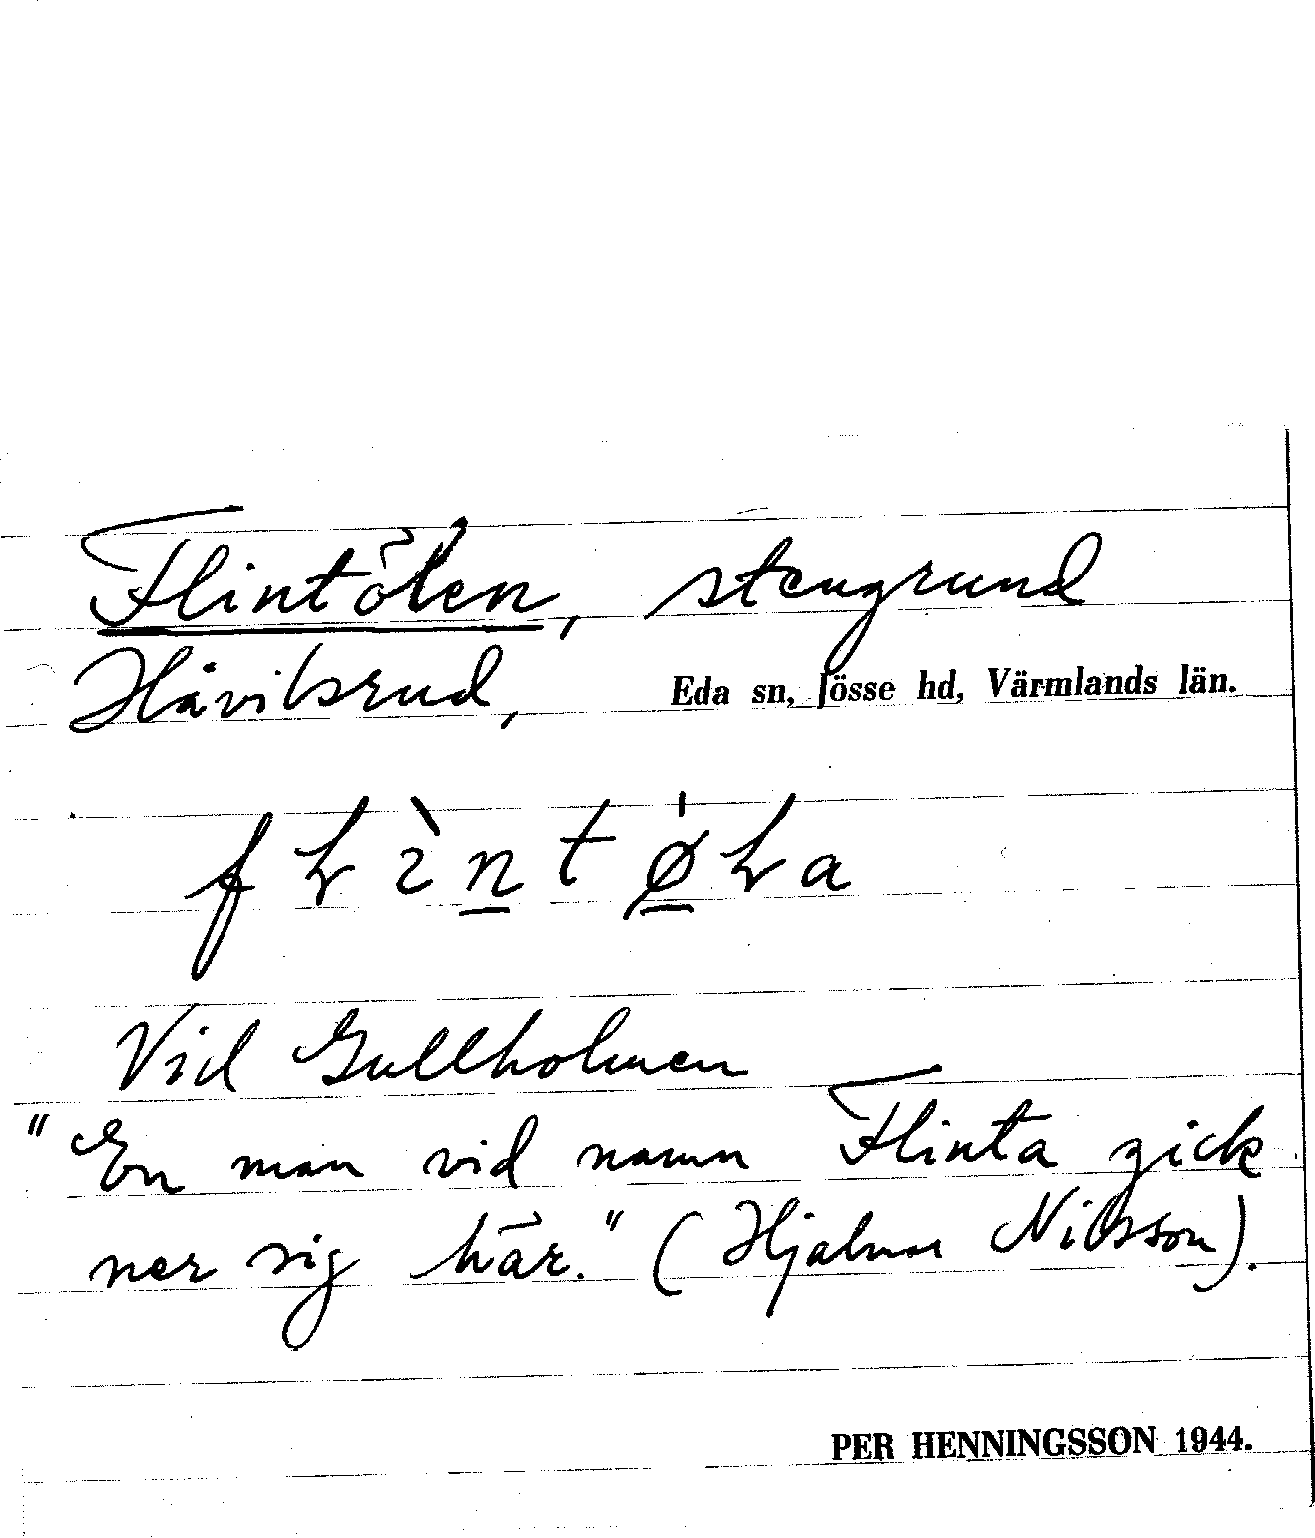 Flintölen, stengrund
Håvilsrud, Eda sn, Jösse hd, Värmlands län.
Vid Gullholmen
"En man vid namn Flinta gick
ner sig här." (Hjalmar Nilsson).
PER HENNINGSSON 1944.